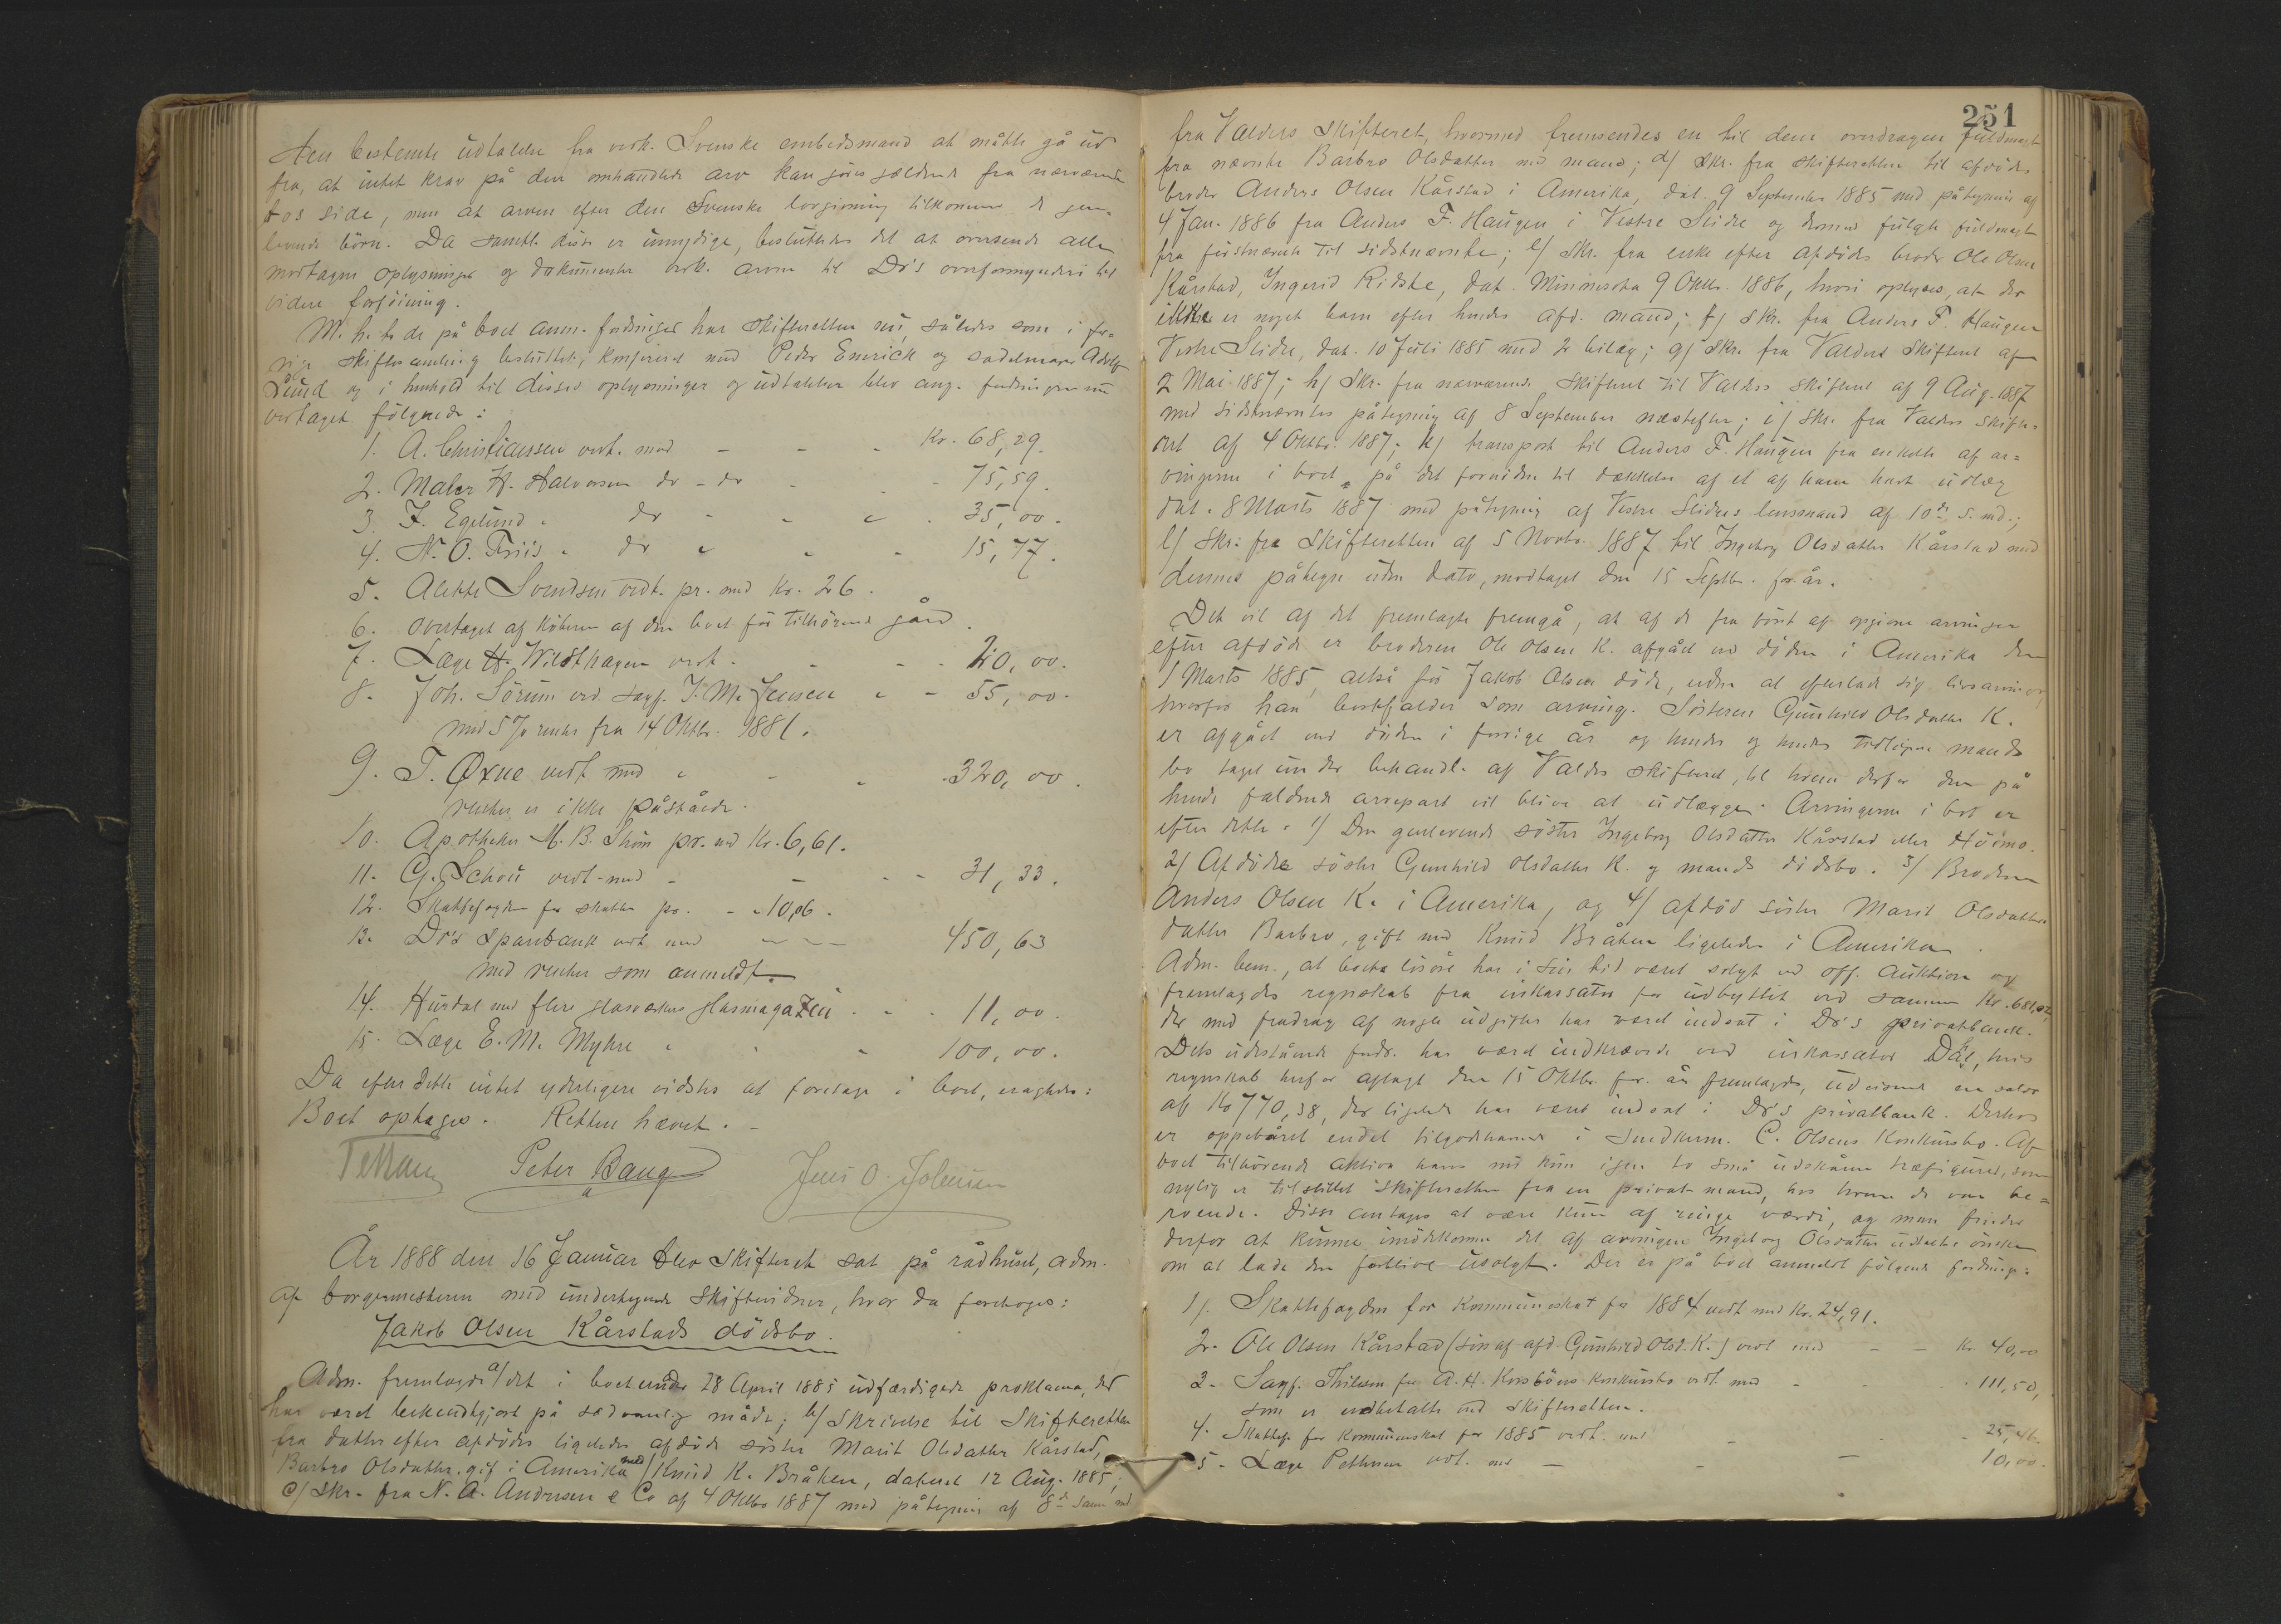 den bestemte udtalelse fra vedk. Svenske embedsmand at måtte gå ud
fra, at intet krav på den omhandlede arv kan gjøres gjældende fra nærværende
bos side, men at arven efter den Svenske lovgivning tilkommer de gen-
levende börn. Da samtl. disse er umyndige, besluttedes det at oversende alle
modtagne oplysninger og dokumenter vedk. arven til Do's overformynderi til
videre forføining.
M. h. t. de på boet anm. fordringer har skifteretten nu, således som i for-
rige skiftesamling besluttet, konfereret med Peder Emerick og sadelmager Adolf
Lund og i henhold til disses oplysninger og udtalelser blev ang. fordringerne nu
vedtaget følgende:
1. A. Christiansen vedt. med - - - Kr. 68,29.
2. Maler H. Halvorsen do - do - - - 75,59.
3. F. Egelund - do - - - 35,00.
4. N. O. Friis - do - - - 15,77.
5. Alette Svendsen vedt. pr. med Kr. 26.
6. overtaget af köberen af den boet før tilhørende gård.
7. Læge H. Wildthagen vedt. - - - 20,00.
8. Joh. Sörum ved sagf. J. M. Jensen - - 55,00.
med 5 % renter fra 14 Oktbr. 1881.
9. T. Øxne vedt med - - - 320,00.
renter er ikke påståede.
10. Apotheker M. B. Thom pr. med Kr. 6,61.
11. G. Schou vedt. med - - - 31,33.
12. Skattefogden for skatter pr. - - 10,06.
13. Do's Sparebank vedt. med - - - 450,63
med renter som anmeldt.
14. Hurdal med flere glasværkers glasmagazin - - - 11,00.
15. Læge E. M. Myhre - - - 100,00.
Da efter dette intet yderligere vidstes at foretage i boet, eragtedes:
Boet optages. Retten hævet. -
Peter Bang Jens O. Johnsen
År 1888 den 16 Januar blev Skifteret sat på rådhuset, adm.
af borgermesteren med undertegnede Skiftevidner, hvor da foretoges:
Jakob Olsen Kårstads dödsbo.
Adm. fremlagde a/ det i boet under 28 April 1885 udfærdigede proklama, der
har været bekendtgjort på sædvanlig måde; b/ Skrivelse til Skifteretten
fra datter efter afdödes ligeledes afdöde söster Marit Olsdatter Kårstad,
Barbro Olsdatter, gift i Amerika med Knud K. Bråken, dateret 12 Aug. 1885;
c/ Skr. fra N. A. Andresen & Co af 4 Oktbr 1887 med påtegning af 8de samme md
251
fra Valders Skifteret, hvormed fremsendes en til dem overdragen fuldmagt
fra nævnte Barbro Olsdatter med mand; d/ Skr. fra skifteretten til afdödes
broder Anders Olsen Kårstad i Amerika, dat. 9 September 1885 med påtegning af
4 Jan. 1886 fra Anders F. Haugen i Vestre Slidre og dermed fulgte fuldmagt
fra förstnævnte til sidstnævnte; e/ Skr. fra enke efter afdödes broder Ole Olsen
Kårstad, Ingerid Ridste, dat. Minnesota 9 Oktbr. 1886, hvori oplyses, at der
ikke er noget barn efter hendes afd. mand; f/ Skr. fra Anders F. Haugen
Vestre Slidre, dat. 10 Juli 1885 med 2 bilag; g/ Skr. fra Valders Skifteret af
2 Mai 1887; h/ Skr. fra nærværende Skifteret til Valders skifteret af 9 Aug. 1887
med sidstnævntes påtegning af 8 September næstefter; i/ Skr. fra Valders Skifte-
ret af 4 Oktbr. 1887; k/ transport til Anders F. Haugen fra enkelte af ar-
vingerne i boet på det fornødne til dækkelse af et af ham havt udlæg
dat. 8 Marts 1887 med påtegning af Vestre Slidres lensmand af 10de s. md.;
l/ Skr. fra Skifteretten af 5 Novbr. 1887 til Ingeborg Olsdatter Kårstad med
dennes påtegn. uden dato, modtaget den 15 Septbr. for. år.
Det vil af det fremlagte fremgå, at af de fra först af opgivne arvinger
efter afdöde er broderen Ole Olsen K. afgået ved döden i Amerika den
1 Marts 1885, altså før Jakob Olsen döde, uden at efterlade sig livsarvinger
hvorfor han bortfalder som arving. Søsteren Gunhild Olsdatter K.
er afgået ved döden i forrige år og hendes og hendes tidligere mands
bo taget under behandl. af Valders skifteret, til hvem derfor den på
hende faldende arvepart vil blive at udlægge. Arvingerne i boet er
efter dette: 1/ Den genlevende söster Ingeborg Olsdatter Kårstad eller Höimo.
2/ Afdöde söster Gunhild Olsdatter K. og mands dödsbo. 3/ Broderen
Anders Olsen K. i Amerika, og 4/ afdöd söster Marit Olsdatters
datter Barbro, gift med Knud Bråken ligeledes i Amerika.
Adm. bem., at boets lösöre har i sin tid været solgt ved off. auktion og
fremlagdes regnskab fra inkassator for udbyttet ved samme Kr. 681,02,
der med fradrag af nogle udgifter har været indsat i Do's privatbank.
Dets udestående fordr. har været indkrævede ved inkassator Dal, hvis
regnskab herfor aflagt den 15 Oktbr. for. år fremlagdes, udvisende en saldo
af Kr 770,38, der ligeledes har været indsat i Do's privatbank. Derhos
er oppebåret endel tilgodehavende i C. Olsens Konkursbo. Af
boet tilhörende aktiva haves nu kun igen to små udskårne træfigurer, som
nylig er tilstillet skifteretten fra en privat mand, hos hvem de var be-
roende. Disse antages at være kun af ringe værdi, og man finder
derfor at kunne imödekomme det af arvingen Ingeborg Olsdatter udtalte önske
om at lade dem forblive usolgt. Der er på boet anmeldt følgende fordringer:
1/. Skattefogden for Kommuneskat for 1884 vedt med Kr. 24,91.
2. Ole Olsen Kårstad (sön af afd. Gunhild Olsd. K.) vedt med - - Kr. 40,00
3. Sagf. Thilesen for A. H. Korsböns Konkursbo vedt. med - - - 111,50,
som er indbetalte ved Skifteretten.
4. Skattef. for Kommuneskat for 1885 vedt. med - - 25,46.
5. Læge Pettersen vdt. med - - - 10,00.